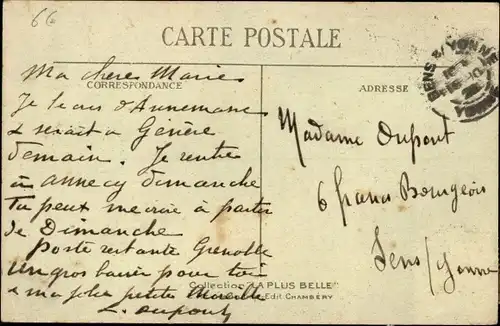 66
CARTE POSTALE
SENS S/ YONNE
Ma chere Marie
CORRESPONDANCE
ADRESSE
Je d'Annemasse
& serait a Genève
demain. Je rentre
à annecy dimanche
Tu peux à partir
de Dimanche
poste restante Grenoble
un gros baiser pour toi
& ma jolie petite
L. Dupont
Madame Dupont
6 Bourgeois
Sens / Yonne
Collection "LA PLUS BELLE"
Edit CHAMBÉRY